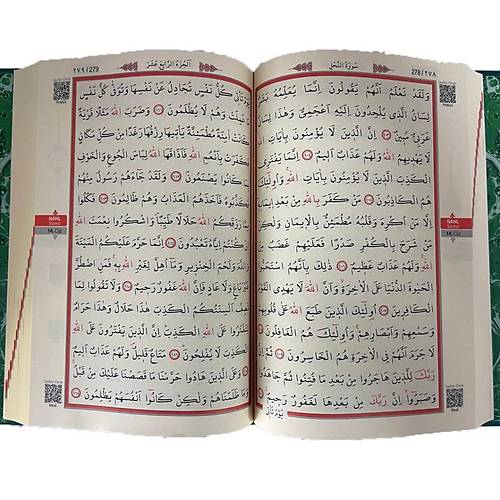 278/٢٧٨
سُورَةُ النَّحْلِ
وَلَقَدْ نَعْلَمُ اَنَّهُمْ يَقُولُونَ اِنَّمَا يُعَلِّمُهُ بَشَرٌ
لِسَانُ الَّذِي يُلْحِدُونَ اِلَيْهِ اَعْجَمِيٌّ وَهٰذَا لِسَانٌ
عَرَبِيٌّ مُبِينٌ ﴿١٠٣﴾ اِنَّ الَّذِينَ لَا يُؤْمِنُونَ بِاٰيَاتِ اللّٰهِ
لَا يَهْدِيهِمُ اللّٰهُ وَلَهُمْ عَذَابٌ اَلِيمٌ ﴿١٠٤﴾ اِنَّمَا يَفْتَرِي
الْكَذِبَ الَّذِينَ لَا يُؤْمِنُونَ بِاٰيَاتِ اللّٰهِ وَاُولٰئِكَ
هُمُ الْكَاذِبُونَ ﴿١٠٥﴾ مَنْ كَفَرَ بِاللّٰهِ مِنْ بَعْدِ اِيمَانِهِ
اِلَّا مَنْ اُكْرِهَ وَقَلْبُهُ مُطْمَئِنٌّ بِالْاِيمَانِ وَلٰكِنْ
مَنْ شَرَحَ بِالْكُفْرِ صَدْرًا فَعَلَيْهِمْ غَضَبٌ مِنَ
اللّٰهِ وَلَهُمْ عَذَابٌ عَظِيمٌ ﴿١٠٦﴾ ذٰلِكَ بِاَنَّهُمُ اسْتَحَبُّوا
الْحَيٰوةَ الدُّنْيَا عَلَى الْاٰخِرَةِ وَاَنَّ اللّٰهَ لَا يَهْدِي الْقَوْمَ
الْكَافِرِينَ ﴿١٠٧﴾ اُولٰئِكَ الَّذِينَ طَبَعَ اللّٰهُ عَلٰى قُلُوبِهِمْ
وَسَمْعِهِمْ وَاَبْصَارِهِمْ وَاُولٰئِكَ هُمُ الْغَافِلُونَ ﴿١٠٨﴾
لَا جَرَمَ اَنَّهُمْ فِي الْاٰخِرَةِ هُمُ الْخَاسِرُونَ ﴿١٠٩﴾ ثُمَّ اِنَّ
رَبَّكَ لِلَّذِينَ هَاجَرُوا مِنْ بَعْدِ مَا فُتِنُوا ثُمَّ جَاهَدُوا
وَصَبَرُوا اِنَّ رَبَّكَ مِنْ بَعْدِهَا لَغَفُورٌ رَحِيمٌ ﴿١١٠﴾
يَوْمَ تَأْتِي
NAHL
14. Cüz
Meal
اَلْجُزْءُ الرَّابِعُ عَشَرَ
٢٧٩/279
يَوْمَ تَأْتِي كُلُّ نَفْسٍ تُجَادِلُ عَنْ نَفْسِهَا وَتُوَفّٰى كُلُّ نَفْسٍ
مَا عَمِلَتْ وَهُمْ لَا يُظْلَمُونَ ﴿١١١﴾ وَضَرَبَ اللّٰهُ مَثَلًا قَرْيَةً
كَانَتْ اٰمِنَةً مُطْمَئِنَّةً يَأْتِيهَا رِزْقُهَا رَغَدًا مِنْ كُلِّ مَكَانٍ
فَكَفَرَتْ بِاَنْعُمِ اللّٰهِ فَاَذَاقَهَا اللّٰهُ لِبَاسَ الْجُوعِ وَالْخَوْفِ
بِمَا كَانُوا يَصْنَعُونَ ﴿١١٢﴾ وَلَقَدْ جَاءَهُمْ رَسُولٌ مِنْهُمْ
فَكَذَّبُوهُ فَاَخَذَهُمُ الْعَذَابُ وَهُمْ ظَالِمُونَ ﴿١١٣﴾ فَكُلُوا
مِمَّا رَزَقَكُمُ اللّٰهُ حَلَالًا طَيِّبًا وَاشْكُرُوا نِعْمَتَ اللّٰهِ
اِنْ كُنْتُمْ اِيَّاهُ تَعْبُدُونَ ﴿١١٤﴾ اِنَّمَا حَرَّمَ عَلَيْكُمُ الْمَيْتَةَ
وَالدَّمَ وَلَحْمَ الْخِنْزِيرِ وَمَا اُهِلَّ لِغَيْرِ اللّٰهِ بِهِ فَمَنِ اضْطُرَّ
غَيْرَ بَاغٍ وَلَا عَادٍ فَاِنَّ اللّٰهَ غَفُورٌ رَحِيمٌ ﴿١١٥﴾ وَلَا تَقُولُوا لِمَا
تَصِفُ اَلْسِنَتُكُمُ الْكَذِبَ هٰذَا حَلَالٌ وَهٰذَا حَرَامٌ
لِتَفْتَرُوا عَلَى اللّٰهِ الْكَذِبَ اِنَّ الَّذِينَ يَفْتَرُونَ عَلَى اللّٰهِ
الْكَذِبَ لَا يُفْلِحُونَ ﴿١١٦﴾ مَتَاعٌ قَلِيلٌ وَلَهُمْ عَذَابٌ اَلِيمٌ
﴿١١٧﴾ وَعَلَى الَّذِينَ هَادُوا حَرَّمْنَا مَا قَصَصْنَا عَلَيْكَ مِنْ قَبْلُ
وَمَا ظَلَمْنَاهُمْ وَلٰكِنْ كَانُوا اَنْفُسَهُمْ يَظْلِمُونَ ﴿١١٨﴾
NAHL
14. Cüz
Meal